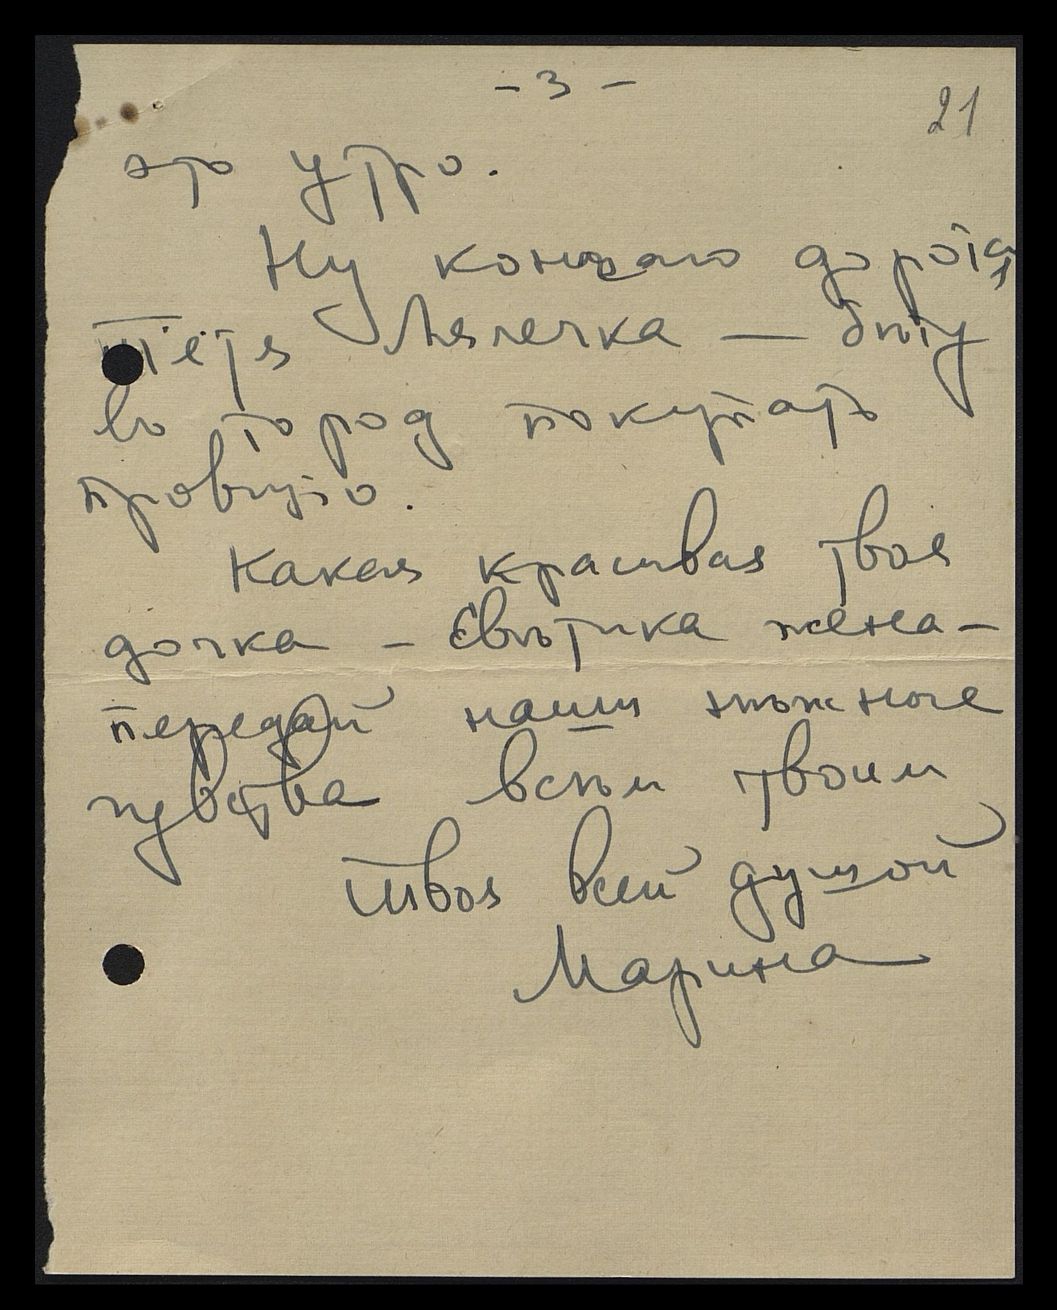 - 3 -
21
это утро.
Ну кончаю дорогая
тётя Лялечка — бѣгу
въ город покупать
провизію.
Какая красивая твоя
дочка - Свѣтика жена -
передай наши нѣжные
чувства всѣм твоим
твоя всей душой
Марина